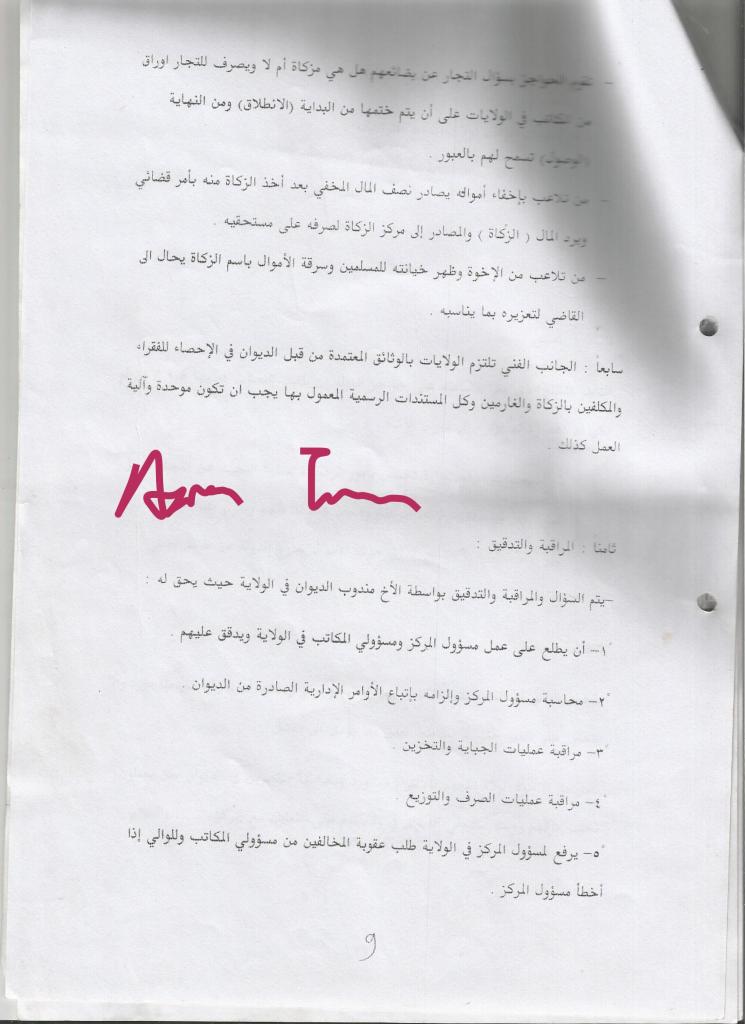 - تقوم الحواجز بسؤال التجار عن بضائعهم هل هي مزكاة أم لا ويصرف للتجار اوراق
من المكاتب في الولايات على أن يتم ختمها من البداية (الانطلاق) ومن النهاية
(الوصول) تسمح لهم بالعبور .
- من تلاعب بإخفاء أمواله يصادر نصف المال المخفي بعد أخذ الزكاة منه بأمر قضائي
ويرد المال ( الزكاة ) والمصادر إلى مركز الزكاة لصرفه على مستحقيه .
- من تلاعب من الإخوة وظهر خيانته للمسلمين وسرقة الأموال باسم الزكاة يحال الى
القاضي لتعزيره بما يناسبه .
سابعاً : الجانب الفني تلتزم الولايات بالوثائق المعتمدة من قبل الديوان في الإحصاء للفقراء
والمكلفين بالزكاة والغارمين وكل المستندات الرسمية المعمول بها يجب ان تكون موحدة وآلية
العمل كذلك .
ثامناً : المراقبة والتدقيق :
-يتم السؤال والمراقبة والتدقيق بواسطة الأخ مندوب الديوان في الولاية حيث يحق له :
١- أن يطلع على عمل مسؤول المركز ومسؤولي المكاتب في الولاية ويدقق عليهم .
٢- محاسبة مسؤول المركز وإلزامه بإتباع الأوامر الإدارية الصادرة من الديوان .
٣- مراقبة عمليات الجباية والتخزين .
٤- مراقبة عمليات الصرف والتوزيع .
٥- يرفع لمسؤول المركز في الولاية طلب عقوبة المخالفين من مسؤولي المكاتب وللوالي إذا
أخطأ مسؤول المركز .
9